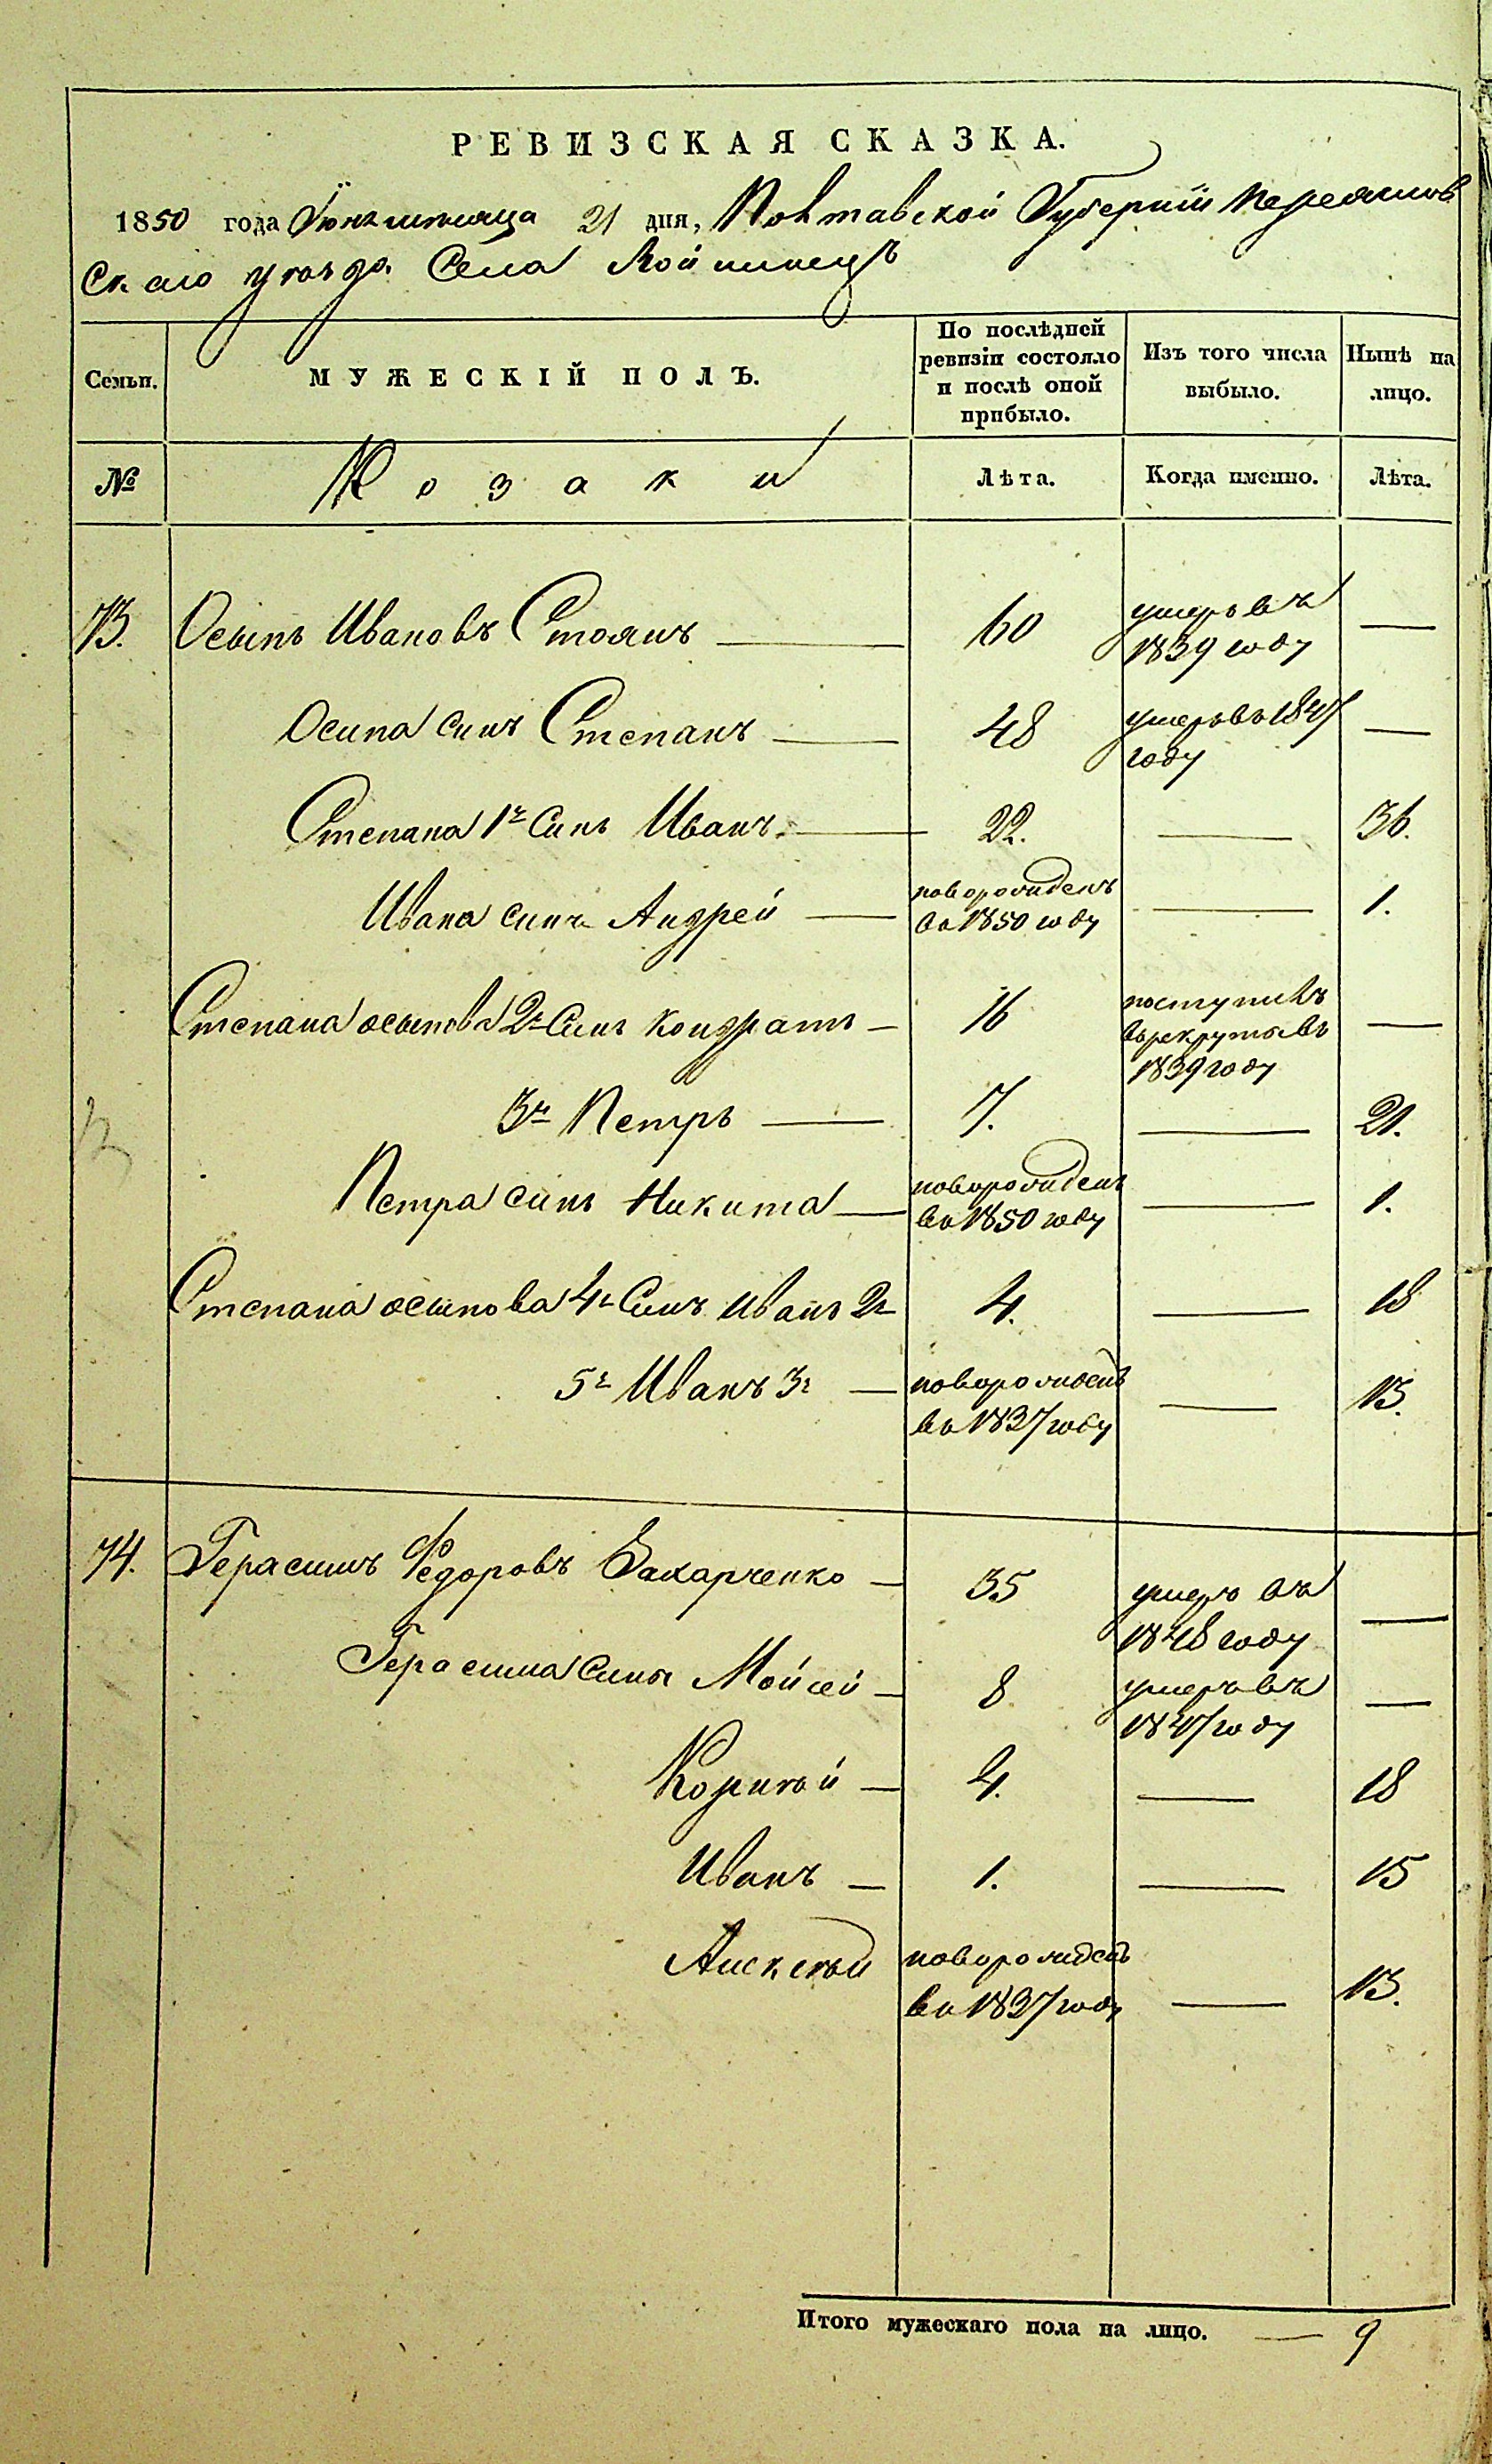 РЕВИЗСКАЯ СКАЗКА.
1850 года Іюня мѣсяца 21 дня, Полтавской Губерніи Переяслов
скаго уѣзда Села Войтовецъ
Семьи. МУЖЕСКІЙ ПОЛЪ. По послѣдней ревизіи состояло и послѣ оной прибыло. Изъ того числа выбыло. Нынѣ на лицо.
№ Козаки Лѣта. Когда именно. Лѣта.
73. Осыпъ Ивановъ Стоянъ — 60 умеръ въ 1839 году —
Осипа синъ Степанъ — 48 умеръ въ 1847 году —
Степана 1й Синъ Иванъ. — 22. — 36.
Ивана синъ Андрей — новорожденъ въ 1850 году — 1.
Степана осыпова 2й Синъ Кондратъ — 16 поступилъ въ рекруты въ 1839 году —
3й Петръ — 7. — 21.
Петра синъ Никита — новорожденъ въ 1850 году — 1.
Степана осыпова 4й Синъ Иванъ 2й 4. — 18
5й Иванъ 3й — новорожденъ въ 1837 году — 13.
74. Герасимъ Федоровъ Захарченко — 35 умеръ въ 1848 году —
Герасима Сины Мойсей — 8 умеръ въ 1847 году —
Корнѣй — 4. — 18
Иванъ — 1. — 15
Алексѣй новорожденъ въ 1837 году — 13.
Итого мужескаго пола на лицо. — 9